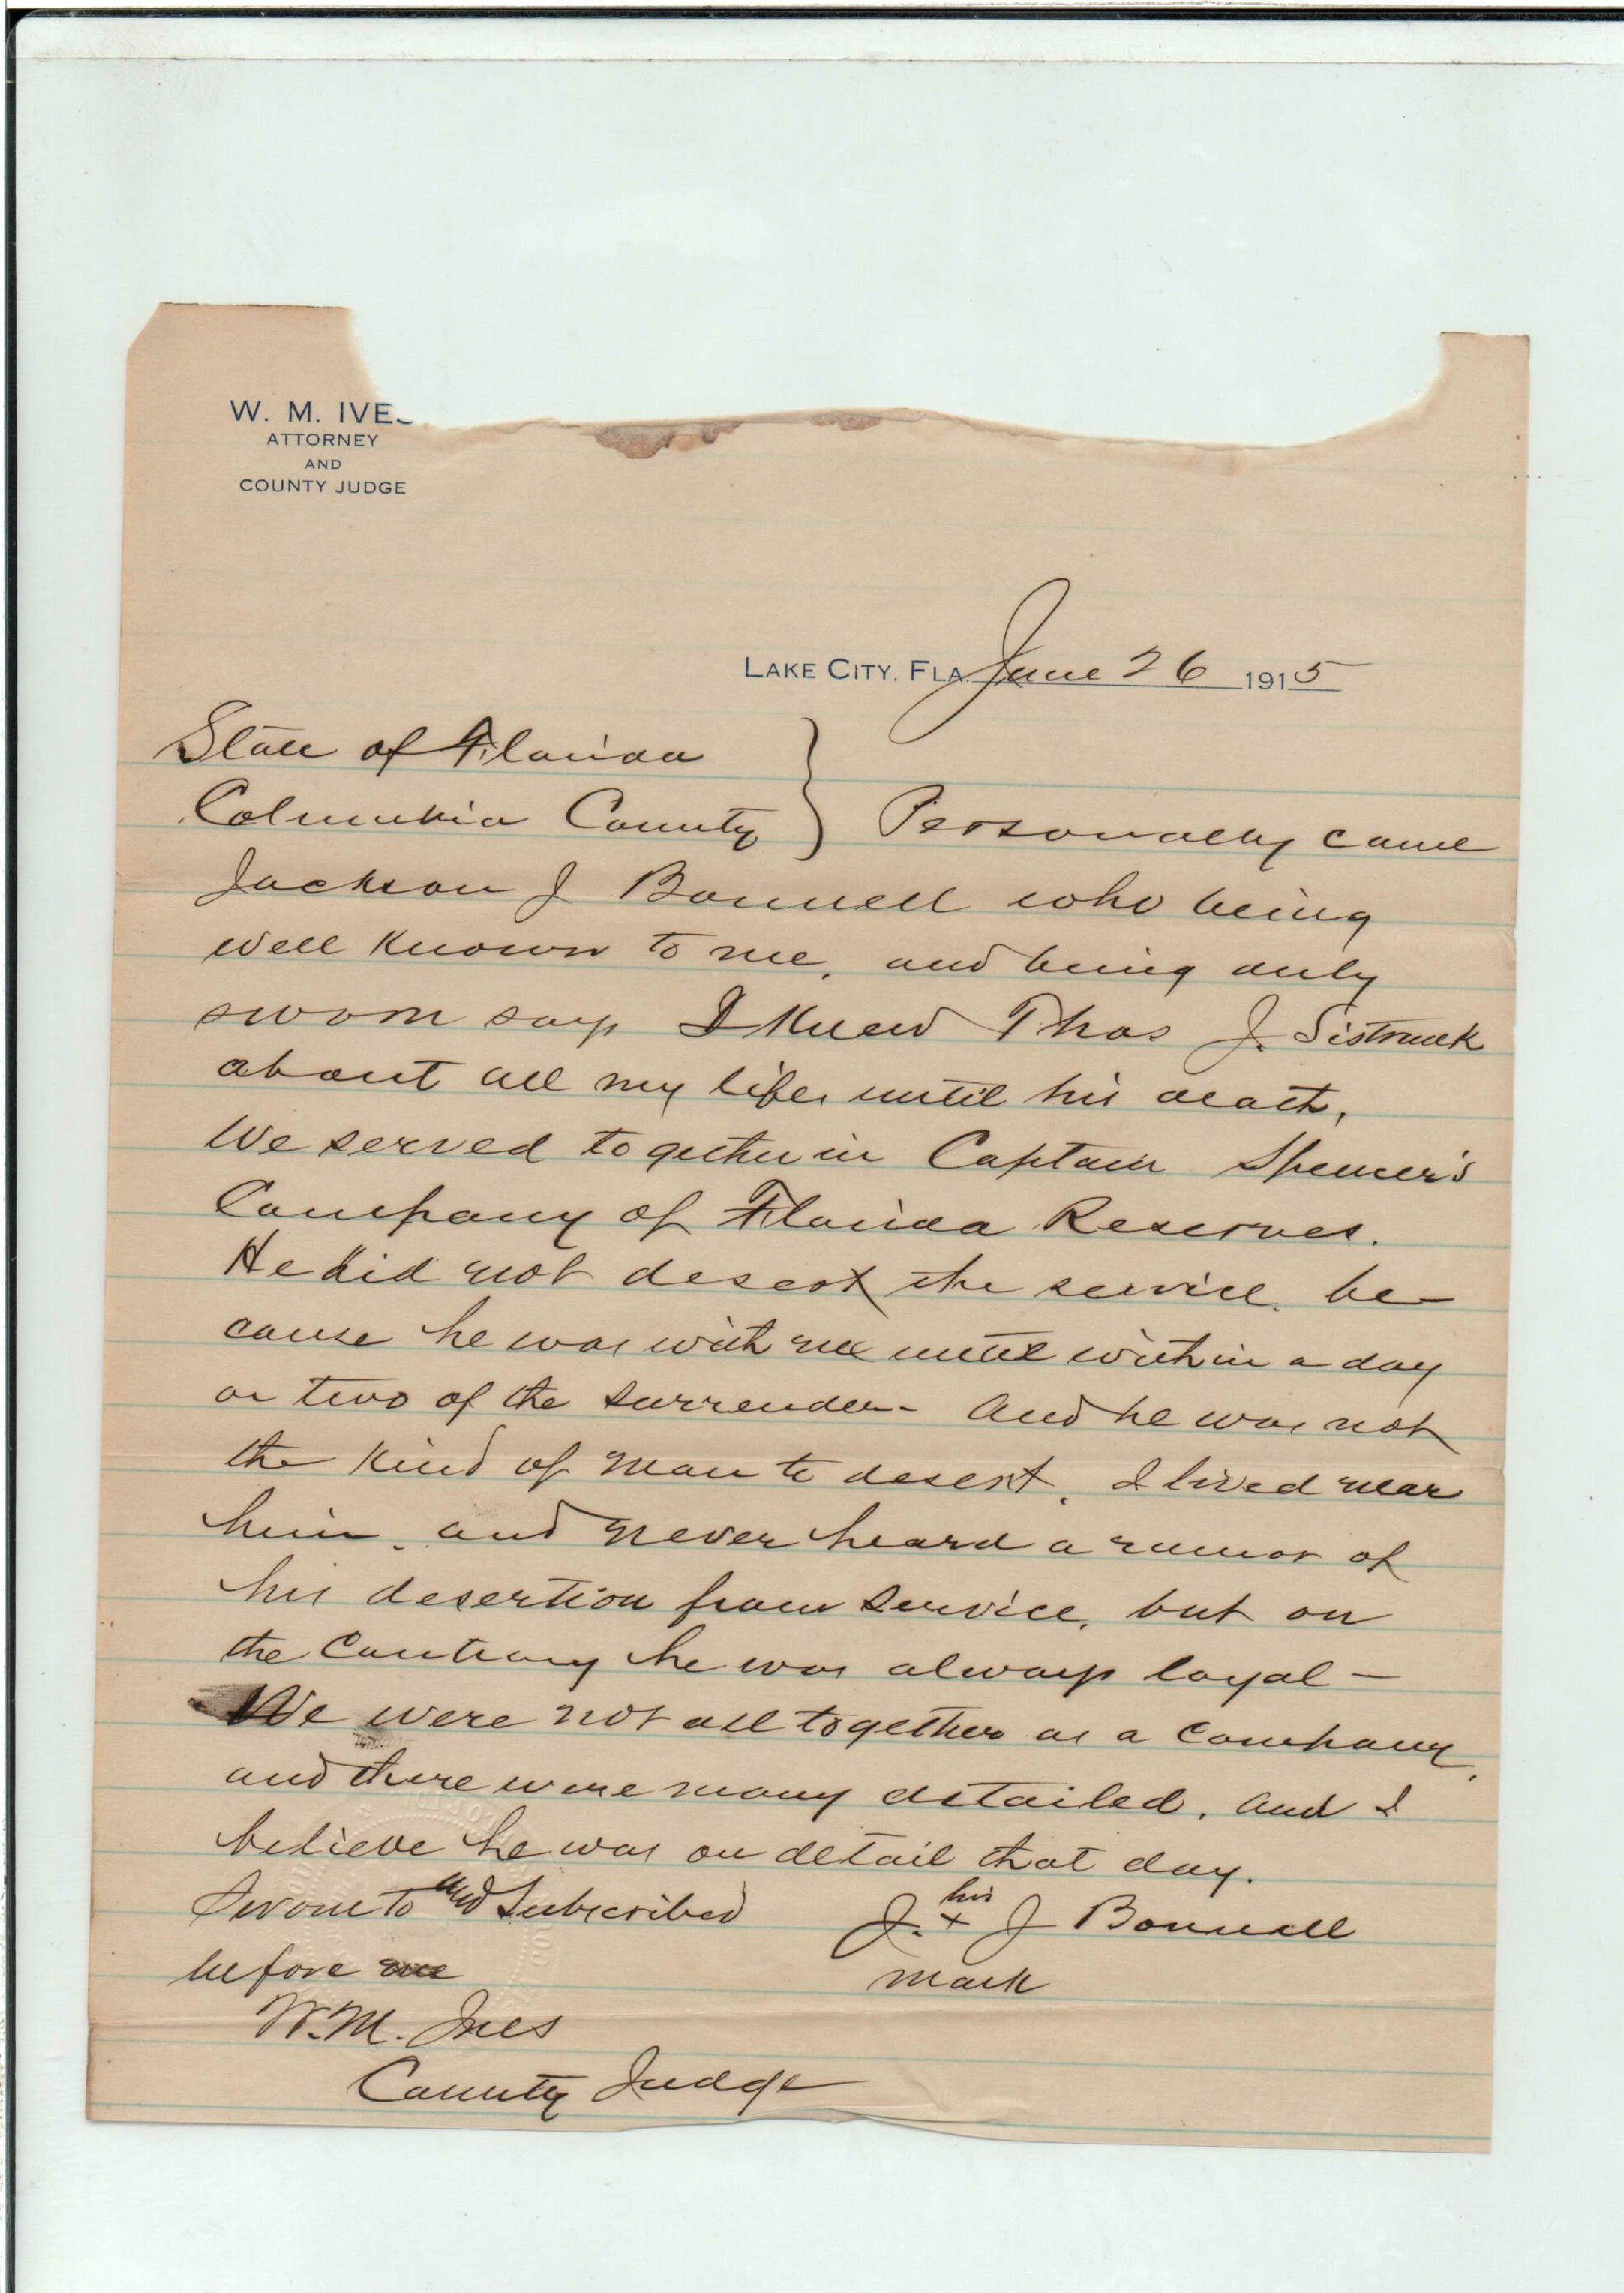 W. M. IVES
ATTORNEY
AND
COUNTY JUDGE
LAKE CITY, FLA. June 26 1915
State of Florida
Columbia County } Personally came
Jackson J Bonnell who being
well known to me, and being duly
sworn says I knew Thos J. Sistrunk
about all my life, until his death,
We served together in Captain Spencer's
Company of Florida Reserves.
He did not desert the service, be-
cause he was with me until within a day
or two of the surrender - And he was not
the kind of man to desert, I lived near
him, and never heard a rumor of
his desertion from service, but on
the contrary he was always loyal -
We were not all together as a company,
and there were many detailed, and I
believe he was on detail that day.
Sworn to and subscribed
before me
his
J. x J Bonnell
mark
W. M. Ives
County Judge